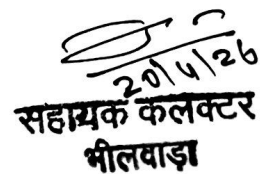 20/4/26
सहायक कलक्टर
भीलवाड़ा